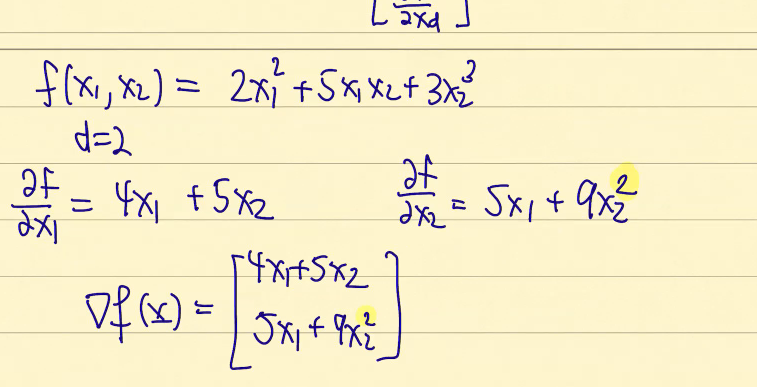 ∂x_d ]
f(x₁, x₂) = 2x₁² + 5x₁x₂ + 3x₂³
d=2
∂f/∂x₁ = 4x₁ + 5x₂    ∂f/∂x₂ = 5x₁ + 9x₂²
∇f(x) = [4x₁+5x₂
5x₁ + 9x₂²]